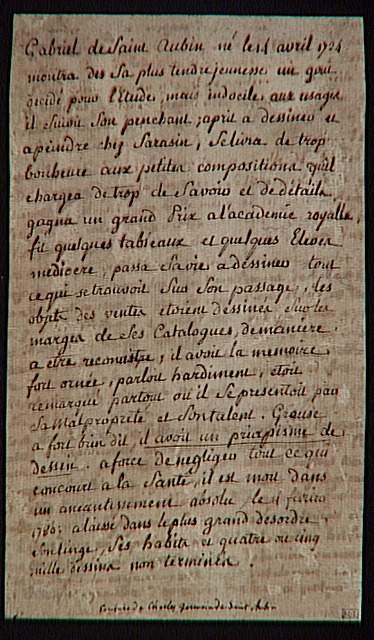 Gabriel de Saint Aubin né le 14 avril 1724
montra des sa plus tendre jeunesse un gout
decidé pour l'Etude, mais indocile, aux usages
il suivit son penchant, aprit a dessiner et
a peindre chez Sarasin, se livra de trop
bonheure aux petites compositions qu'il
chargea de trop de Savoir et de détails,
gagna un grand Prix a l'academie royalle,
fit quelques tableaux et quelques Eleves
mediocre, passa sa vie a dessiner tout
ce qui se trouvoit sus son passage, les
objets des ventes etoient dessinés sur les
marges de ses Catalogues, demaniere
a etre reconnistre, il avoit la memoire
fort ornée, parloit hardiment, etoit
remarqué partout où il se presentoit par
sa malpropreté et son talent. Greuse
a fort bien dit, il avoit un priapisme de
dessein. a force de negliger tout ce qui
concourt a la Santé, il est mort dans
un aneantissement absolu, le
1780. a laissé dans le plus grand desordre
son linge, ses habits et quatre ou cinq
mille dessins non terminés.
Charles germain de Saint Aubin